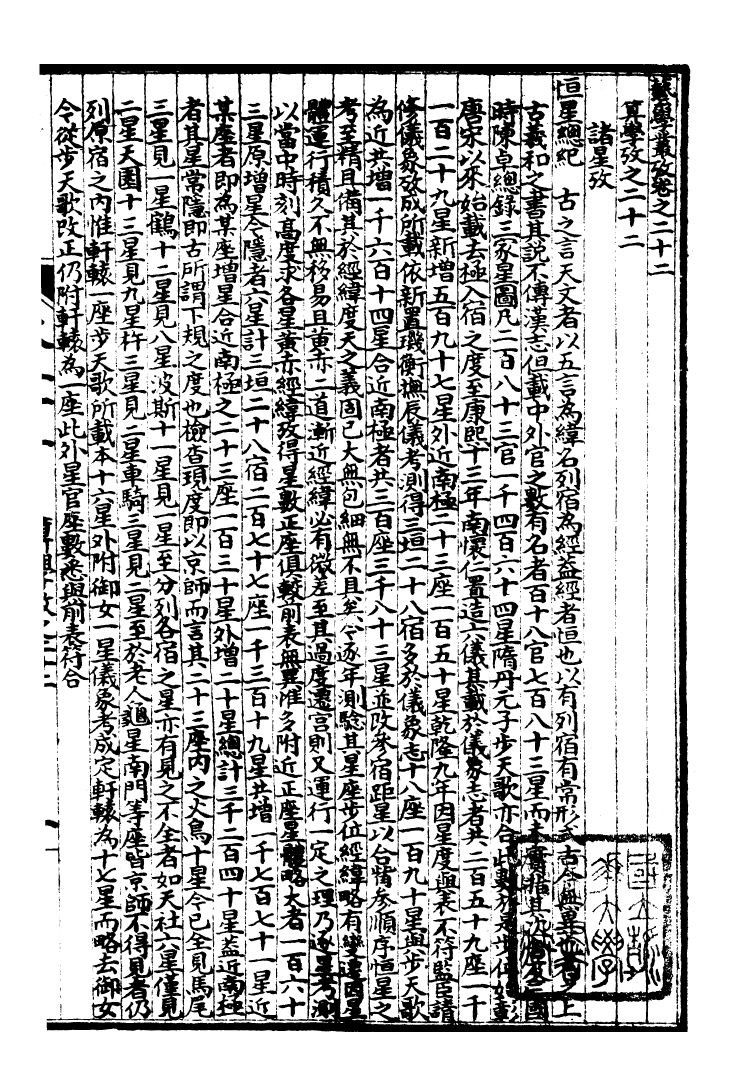 藝學叢攷卷之二十二
算學攷之二十二
諸星攷
恒星總紀　古之言天文者以五言為緯名列宿為經蓋經者恒也以有列宿有常形古今無異也上
古義和之書其說不傳漢志但載中外官之數有名者百十八官七百八十三星而未指其三國
時陳卓總錄三家星圖凡二百八十三官一千四百六十四星隋丹元子步天歌亦合此數於是步位始彰
唐宋以來始載去極入宿之度至康熙十三年南懷仁置造六儀其載於儀象志者共二百五十九座一千
一百二十九星新增五百九十七星外近南極二十三座一百五十星乾隆九年因星度與表不符監臣請
修儀象攷成所載依新置璣衡撫辰儀考測得三垣二十八宿多於儀象志十八座一百九十星與步天歌
為近共增一千六百十四星合近南極者共三百座三千八十三星並改參宿距星以合觜參順序恒星之
考至精且備其於經緯度天之義固已大無包細無不具矣今逐年測驗其星座步位經緯略有變遷因星
體運行積久不無移易且黃赤二道漸近經緯必有微差至其過度遷宮則又運行一定之理乃逐星考測
以當中時刻高度求各星黃赤經緯攷得星數正座俱較前表無異惟多附近正座星體略大者一百六十
三星原增星今隱者六星計三垣二十八宿二百七十七座一千三百十九星共增一千七百七十一星近
某座者即為某座增星合近南極之二十三座一百三十星外增二十星總計三千二百四十星蓋近南極
者其星常隱即古所謂下規之度也檢查現度即以京師而言其二十三座內之火鳥十星今已全見馬尾
三星見一星鶴十二星見八星波斯十一星見一星至分列各宿之星亦有見之不全者如天社六星僅見
二星天園十三星見九星杵三星見二星車騎三星見二星至於老人龜星南門等座皆京師不得見者仍
列原宿之內惟軒轅一座步天歌所載本十六星外附御女一星儀象考成定軒轅為十七星而略去御女
今從步天歌改正仍附軒轅為一座此外星官座數悉與前表符合